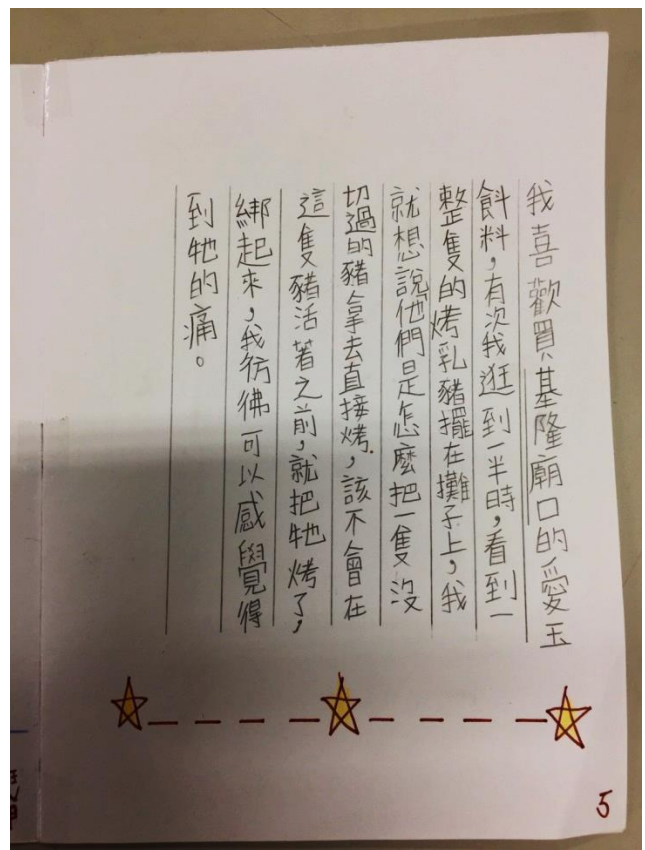 我喜歡買、基隆廟口的愛玉
飲料，有次我逛到一半時，看到一
整隻的烤乳豬擺在攤子上，我
就想說他們是怎麼把一隻沒
切過的豬拿去直接烤，該不會在
這隻豬活著之前，就把牠烤了，
綁起來，我彷彿可以感覺得
到牠的痛。
5